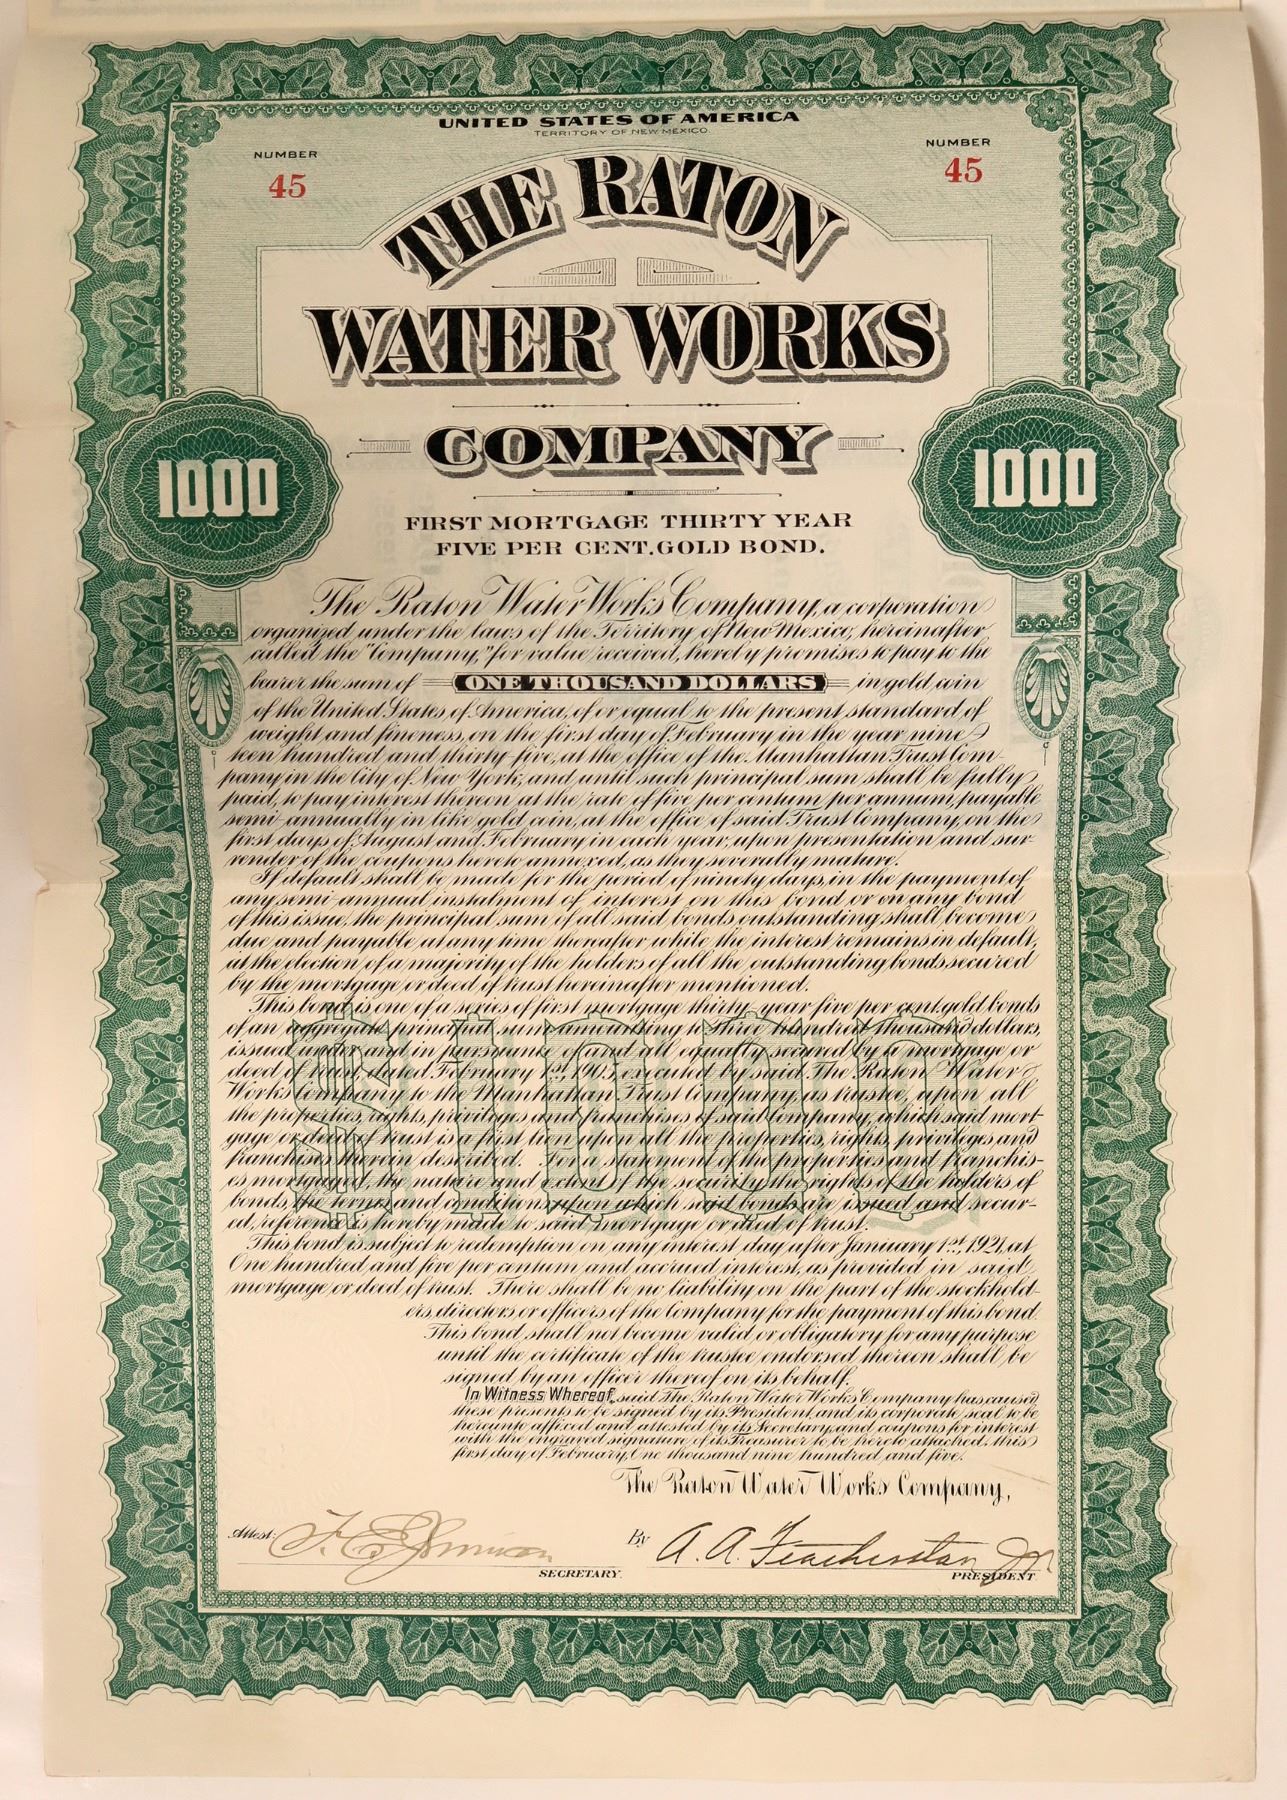 UNITED STATES OF AMERICA
TERRITORY OF NEW MEXICO
NUMBER
45
NUMBER
45
THE RATON
WATER WORKS
COMPANY
1000
1000
FIRST MORTGAGE THIRTY YEAR
FIVE PER CENT. GOLD BOND.
The Raton Water Works Company, a corporation
organized under the laws of the Territory of New Mexico, hereinafter
called the "Company," for value received, hereby promises to pay to the
bearer the sum of ONE THOUSAND DOLLARS in gold coin
of the United States of America, of or equal to the present standard of
weight and fineness, on the first day of February in the year nine-
teen hundred and thirty-five, at the office of the Manhattan Trust Com-
pany in the City of New York, and until such principal sum shall be fully
paid, to pay interest thereon at the rate of five per centum per annum, payable
semi-annually in like gold coin, at the office of said Trust Company, on the
first days of August and February in each year, upon presentation and sur-
render of the coupons hereto annexed, as they severally mature.
If default shall be made for the period of ninety days, in the payment of
any semi-annual instalment of interest on this bond or on any bond
of this issue, the principal sum of all said bonds outstanding shall become
due and payable at any time thereafter while the interest remains in default,
at the election of a majority of the holders of all the outstanding bonds secured
by the mortgage or deed of trust hereinafter mentioned.
This bond is one of a series of first mortgage thirty-year five per cent. gold bonds
of an aggregate principal sum amounting to Three hundred thousand dollars,
issued under and in pursuance of and all equally secured by a mortgage or
deed of trust, dated February 1st, 1905, executed by said The Raton Water
Works Company to the Manhattan Trust Company, as trustee, upon all
the properties, rights, privileges and franchises of said Company, which said mort-
gage or deed of trust is a first lien upon all the properties, rights, privileges and
franchises therein described. For a statement of the properties and franchis-
es mortgaged, the nature and extent of the security, the rights of the holders of
bonds, the terms and conditions upon which said bonds are issued and secur-
ed, reference is hereby made to said mortgage or deed of trust.
$1000
This bond is subject to redemption on any interest day after January 1st, 1921, at
One hundred and five per centum and accrued interest, as provided in said
mortgage or deed of trust. There shall be no liability on the part of the stockhold-
ers, directors or officers of the Company for the payment of this bond.
This bond shall not become valid or obligatory for any purpose
until the certificate of the trustee endorsed thereon shall be
signed by an officer thereof on its behalf.
In Witness Whereof, said The Raton Water Works Company has caused
these presents to be signed by its President, and its corporate seal to be
hereunto affixed and attested by its Secretary, and coupons for interest
with the engraved signature of its Treasurer to be hereto attached, this
first day of February, One thousand nine hundred and five.
The Raton Water Works Company,
Attest:
SECRETARY.
By A. A. Featherstan Jr.
PRESIDENT.